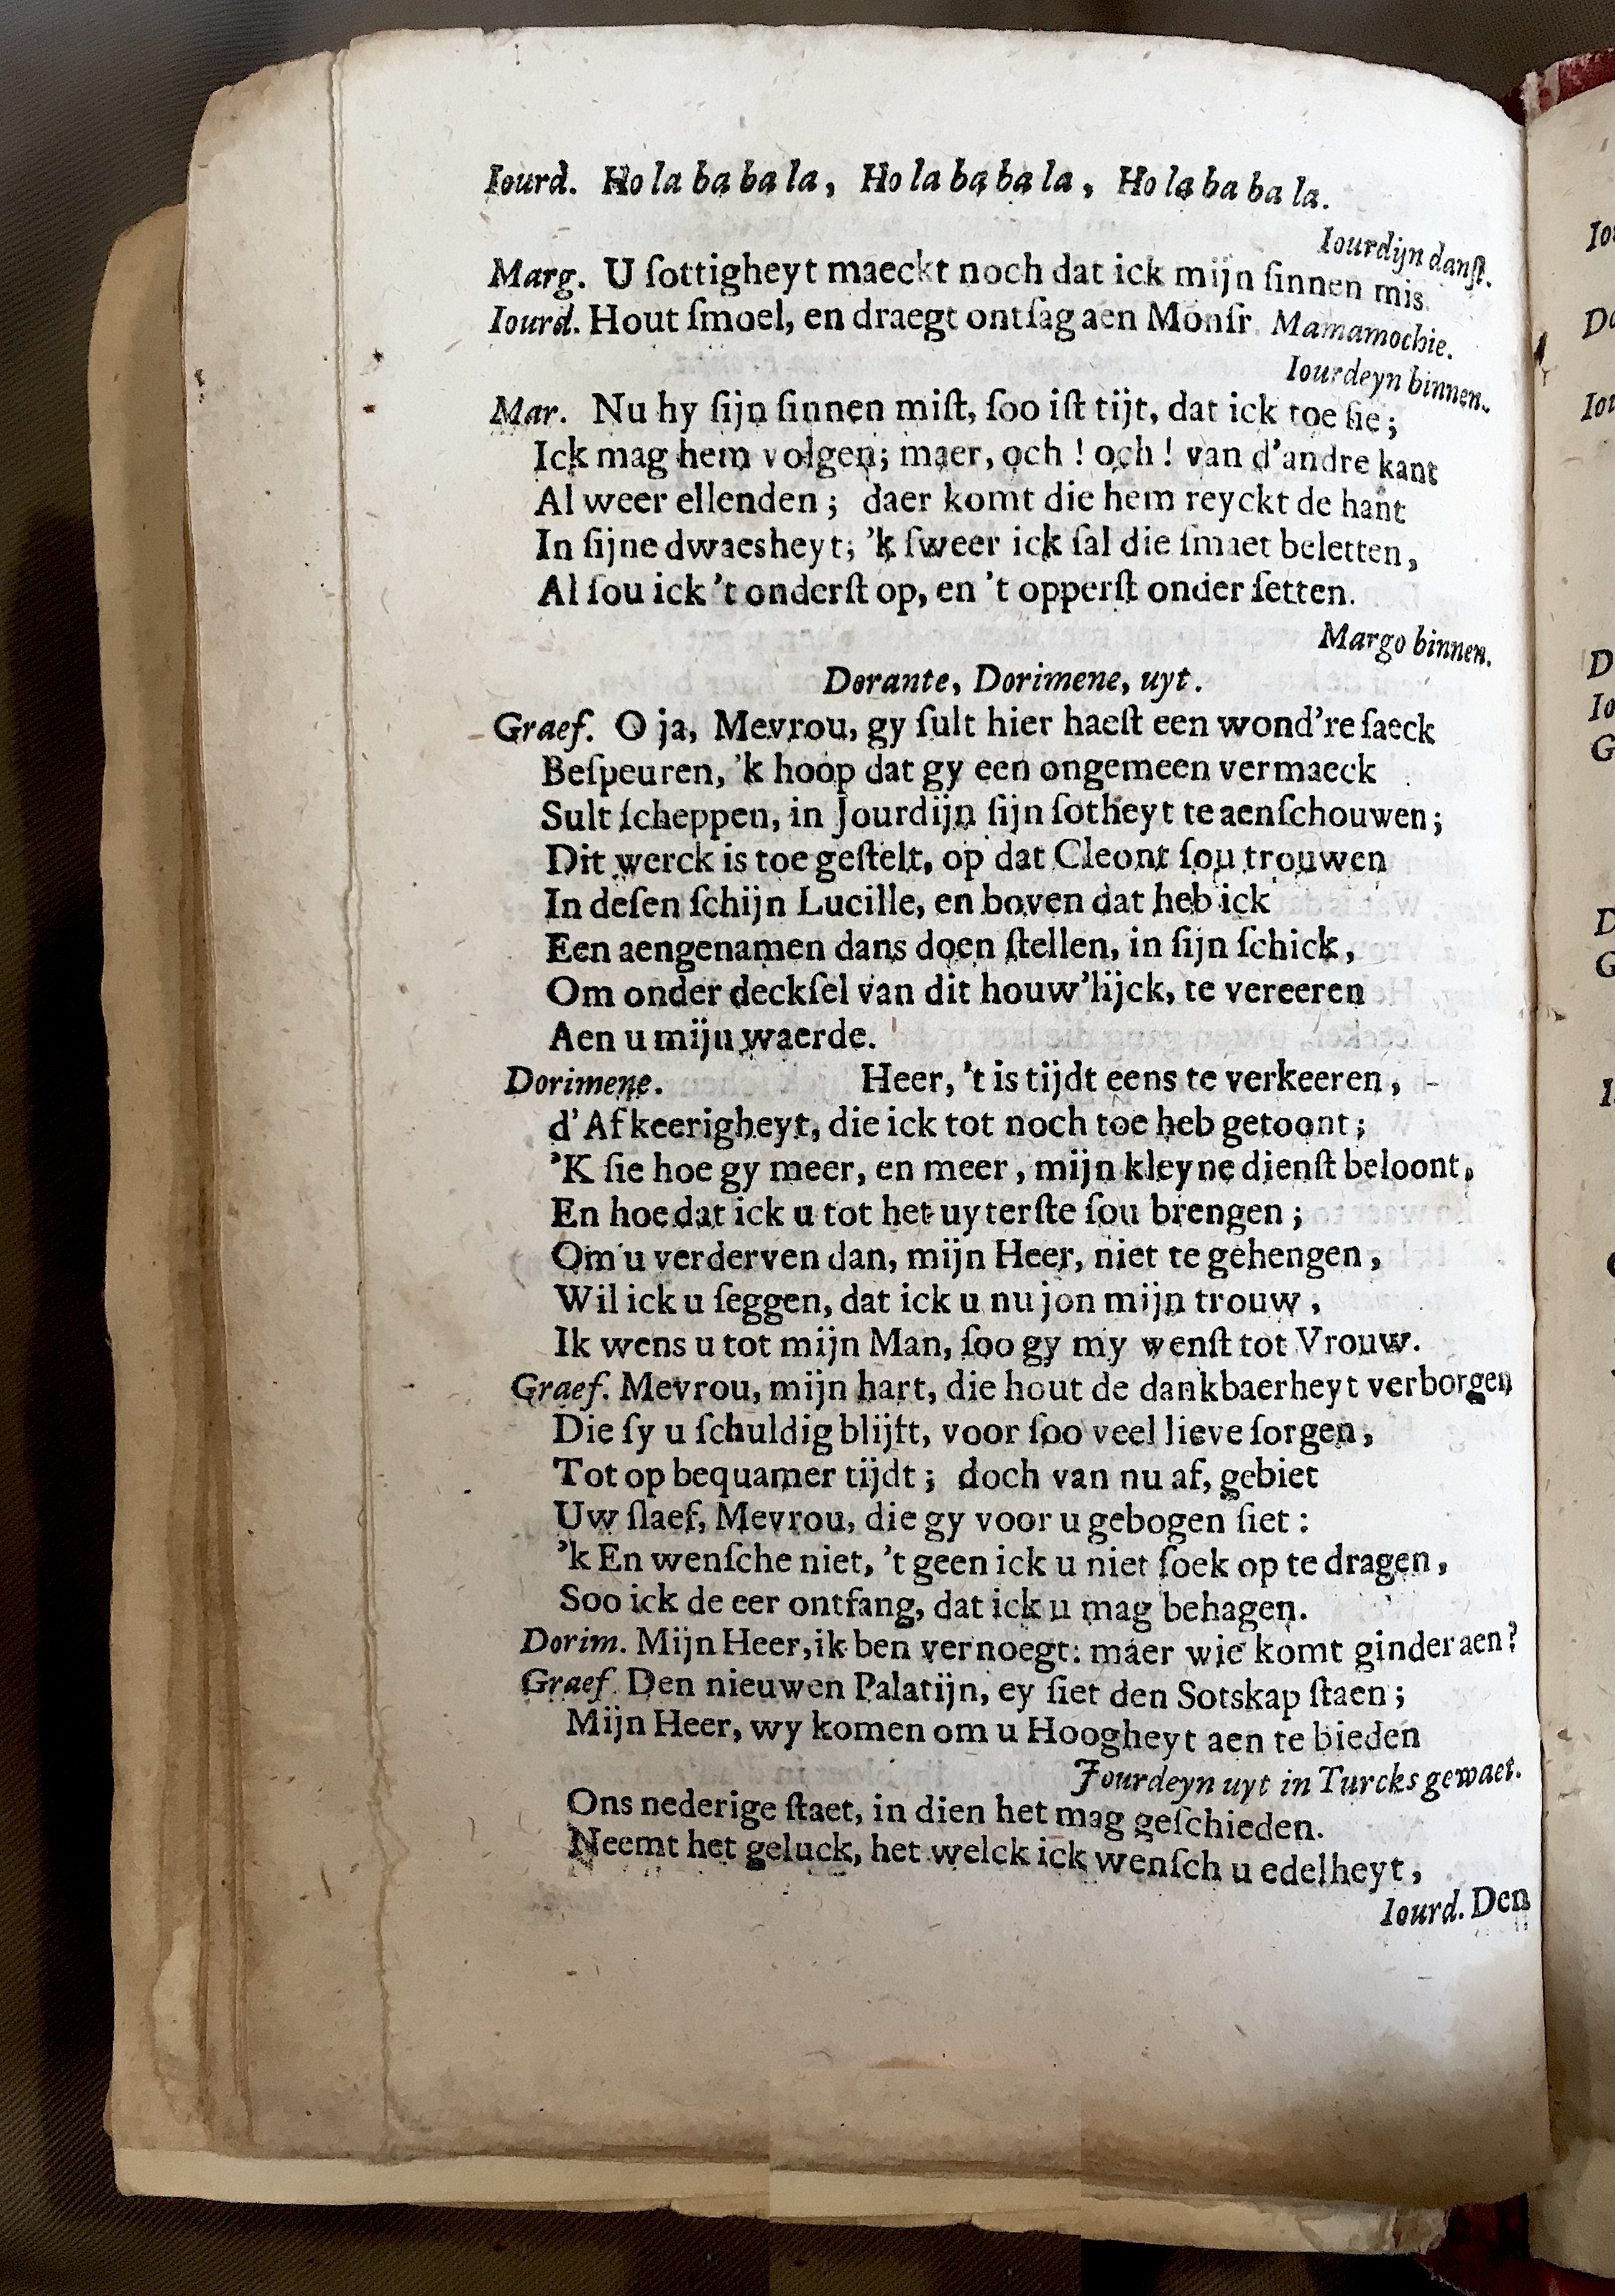 Iourd. Ho la ba ba la, Ho la ba ba la, Ho la ba ba la.
Iourdijn danſt.
Marg. U ſottigheyt maeckt noch dat ick mijn ſinnen mis
Iourd. Hout ſmoel, en draegt ontſag aen Monſr Mamamochie.
Iourdeyn binnen.
Mar. Nu hy ſijn ſinnen miſt, ſoo iſt tijt, dat ick toe ſie;
Ick mag hem volgen; maer, och ! och ! van d'andre kant
Al weer ellenden; daer komt die hem reyckt de hant
In ſijne dwaesheyt; 'k ſweer ick ſal die ſmaet beletten,
Al ſou ick 't onderſt op, en 't opperſt onder ſetten.
Margo binnen.
Dorante, Dorimene, uyt.
Graef. O ja, Mevrou, gy ſult hier haeſt een wond're ſaeck
Beſpeuren, 'k hoop dat gy een ongemeen vermaeck
Sult ſcheppen, in Jourdijn ſijn ſotheyt te aenſchouwen;
Dit werck is toe geſtelt, op dat Cleont ſou trouwen
In deſen ſchijn Lucille, en boven dat heb ick
Een aengenamen dans doen ſtellen, in ſijn ſchick,
Om onder deckſel van dit houw'lijck, te vereeren
Aen u mijn waerde.
Dorimene. Heer, 't is tijdt eens te verkeeren,
d'Afkeerigheyt, die ick tot noch toe heb getoont;
'K ſie hoe gy meer, en meer, mijn kleyne dienſt beloont,
En hoe dat ick u tot het uyterſte ſou brengen;
Om u verderven dan, mijn Heer, niet te gehengen,
Wil ick u ſeggen, dat ick u nu jon mijn trouw,
Ik wens u tot mijn Man, ſoo gy my wenſt tot Vrouw.
Graef. Mevrou, mijn hart, die hout de dankbaerheyt verborgen
Die ſy u ſchuldig blijft, voor ſoo veel lieve ſorgen,
Tot op bequamer tijdt; doch van nu af, gebiet
Uw ſlaef, Mevrou, die gy voor u gebogen ſiet:
'k En wenſche niet, 't geen ick u niet ſoek op te dragen,
Soo ick de eer ontfang, dat ick u mag behagen.
Dorim. Mijn Heer, ik ben vernoegt: maer wie komt ginder aen?
Graef Den nieuwen Palatijn, ey ſiet den Sotskap ſtaen;
Mijn Heer, wy komen om u Hoogheyt aen te bieden
Jourdeyn uyt in Turcks gewaet.
Ons nederige ſtaet, in dien het mag geſchieden.
Neemt het geluck, het welck ick wenſch u edelheyt,
Iourd. Den